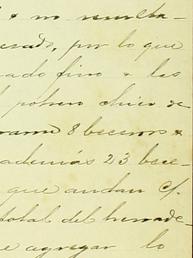 & no resulta-
esado, por lo que
ado fino & las
l potrero chico de
rame 8 becerros &
además 23 bece-
que andan c/.
total del herrade-
e agregar lo